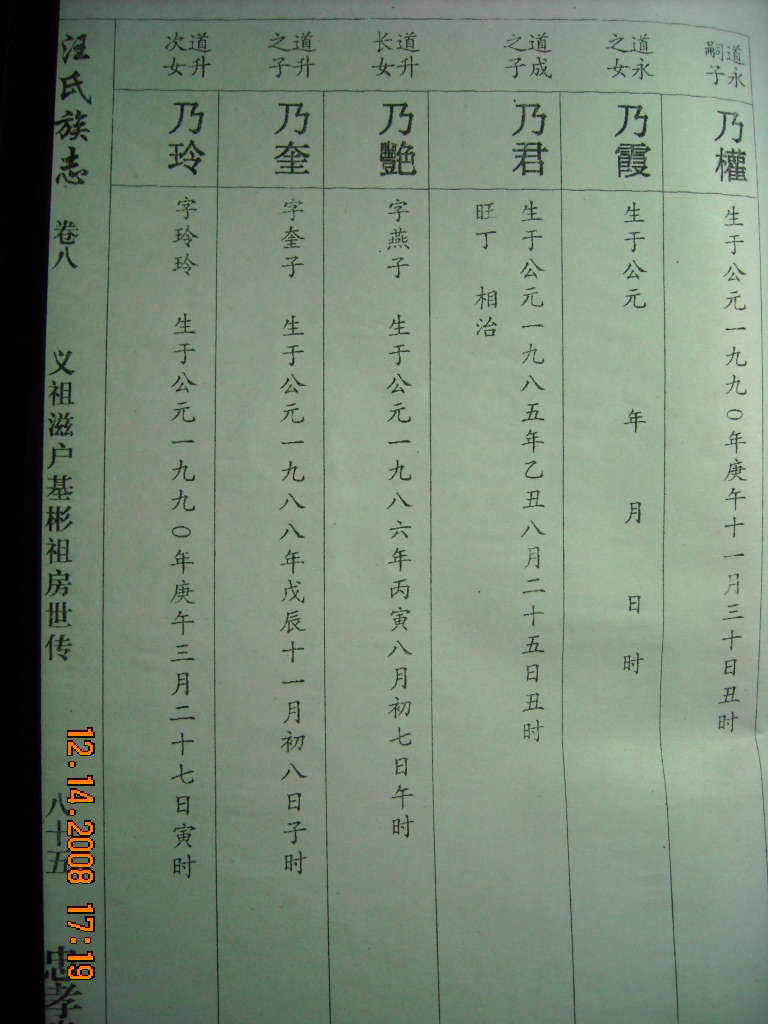 道永
嗣子
乃權
生于公元一九九〇年庚午十一月三十日丑时
道永
之女
乃霞
生于公元 年 月 日 时
道成
之子
乃君
生于公元一九八五年乙丑八月二十五日丑时
旺丁 相治
道升
长女
乃艷
字燕子 生于公元一九八六年丙寅八月初七日午时
道升
之子
乃奎
字奎子 生于公元一九八八年戊辰十一月初八日子时
道升
次女
乃玲
字玲玲 生于公元一九九〇年庚午三月二十七日寅时
汪氏族志 卷八 义祖滋户基彬祖房世传 八十五 忠孝
12.14.2008 17:19